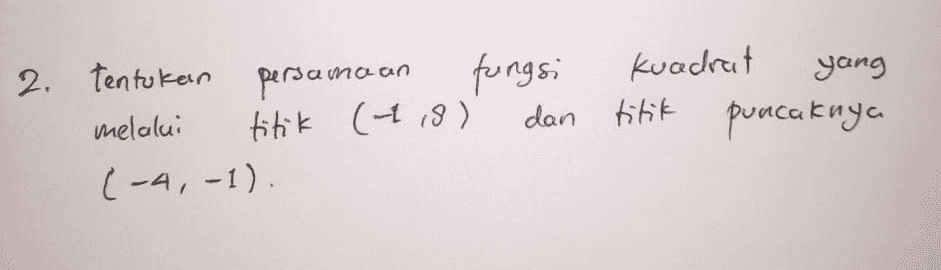 2. Tentukan persamaan fungsi kuadrat yang
melalui titik (-1,8) dan titik puncaknya
(-4, -1).